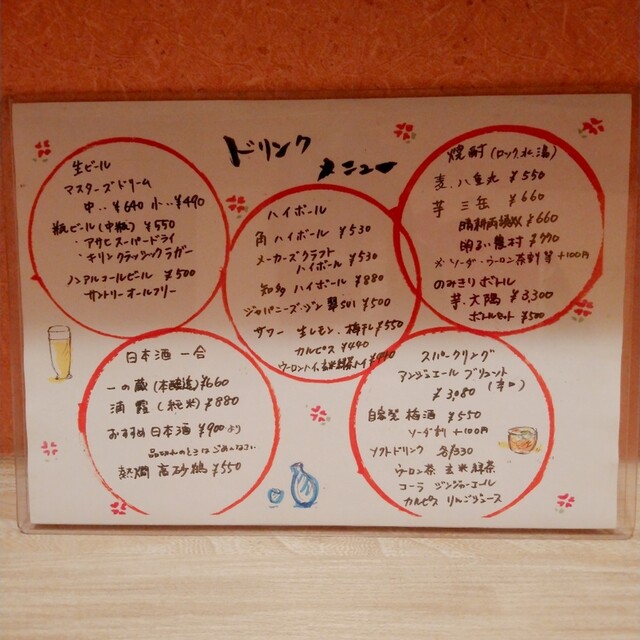 ドリンク
メニュー
生ビール
マスターズドリーム
中‥¥640 小‥¥490
瓶ビール(中瓶) ¥550
・アサヒスーパードライ
・キリンクラッシックラガー
ノンアルコールビール ¥500
サントリーオールフリー
ハイボール
角ハイボール ¥530
メーカーズクラフト
ハイボール ¥530
知多ハイボール ¥880
ジャパニーズ・ジン 翠SOU ¥500
サワー 生レモン・梅干し ¥550
カルピス ¥440
ウーロンハイ、玄米緑茶ハイ ¥440
焼酎(ロック,水,湯)
麦・八重丸 ¥550
芋 三岳 ¥660
晴耕雨読 ¥660
明るい農村 ¥770
※ソーダ・ウーロン茶割等 +100円
のみきりボトル
芋・大隅 ¥3,300
ボトルセット ¥500
日本酒 一合
一の蔵(本醸造) ¥660
浦霞(純米) ¥880
おすすめ日本酒 ¥900より
品切れのときはごめんなさい
熱燗 高砂鶴 ¥550
スパークリング
アンジュエール ブリュット
(辛口)
¥3,080
自家製梅酒 ¥550
ソーダ割 +100円
ソフトドリンク 各¥330
ウーロン茶 玄米緑茶
コーラ ジンジャーエール
カルピス りんごジュース